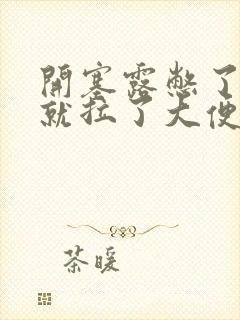 開塞露憋了
就拉了大便
茶暖